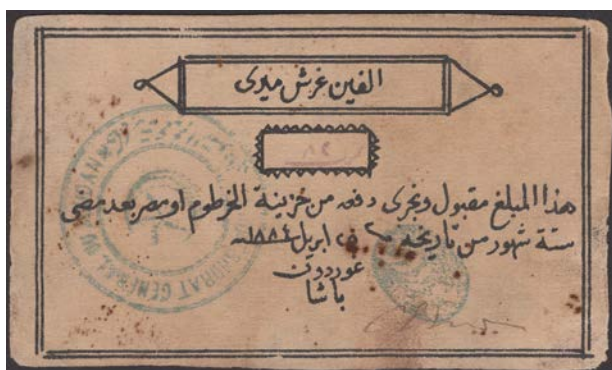 الفين غرش ميرى
٨٤
هذا المبلغ مقبول ويجرى دفعه من خزينة الخرطوم او مصر بعد مضى
ستة شهور من تاريخه ٢٥ ابريل ١٨٨٤
غوردون
باشا
GOUVORAT GENERAL DU SOUDAN